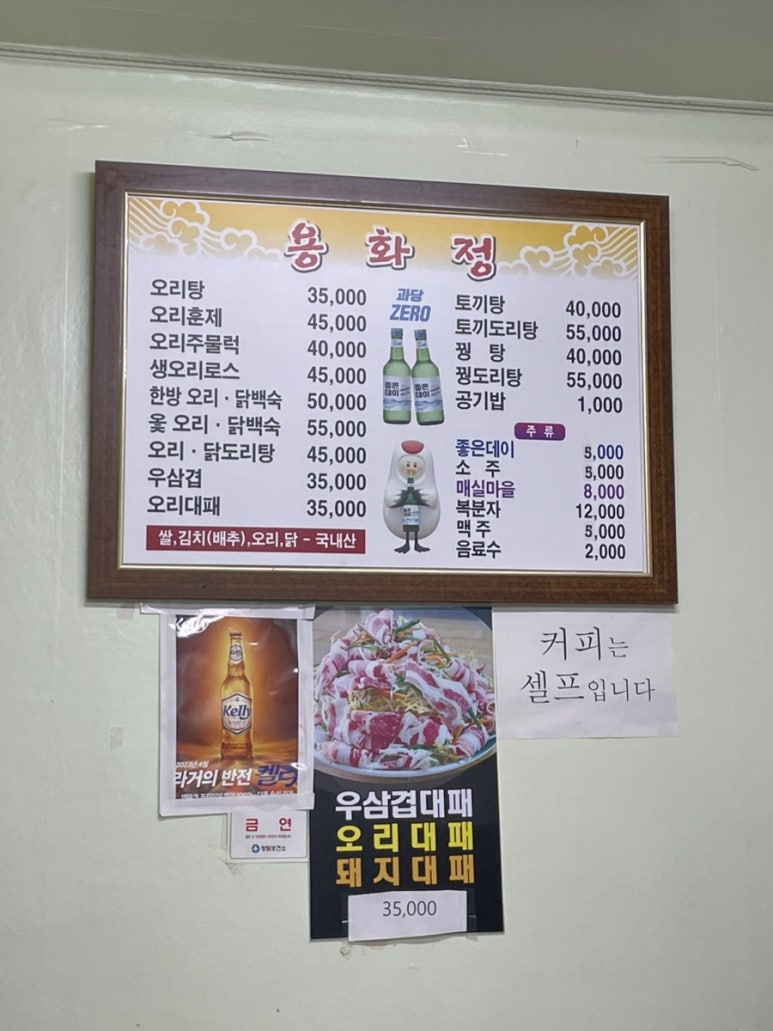 용화정
오리탕 35,000
오리훈제 45,000
오리주물럭 40,000
생오리로스 45,000
한방 오리·닭백숙 50,000
옻 오리·닭백숙 55,000
오리·닭도리탕 45,000
우삼겹 35,000
오리대패 35,000
쌀,김치(배추),오리,닭 – 국내산
과당
ZERO
좋은
데이
좋은
데이
토끼탕 40,000
토끼도리탕 55,000
꿩 탕 40,000
꿩도리탕 55,000
공기밥 1,000
주 류
좋은데이 5,000
소 주 5,000
매실마을 8,000
복분자 12,000
맥 주 5,000
음료수 2,000
Kelly
Kelly
2023년 4월
라거의 반전 켈리
금 연
우삼겹대패
오리대패
돼지대패
35,000
커피는
셀프입니다